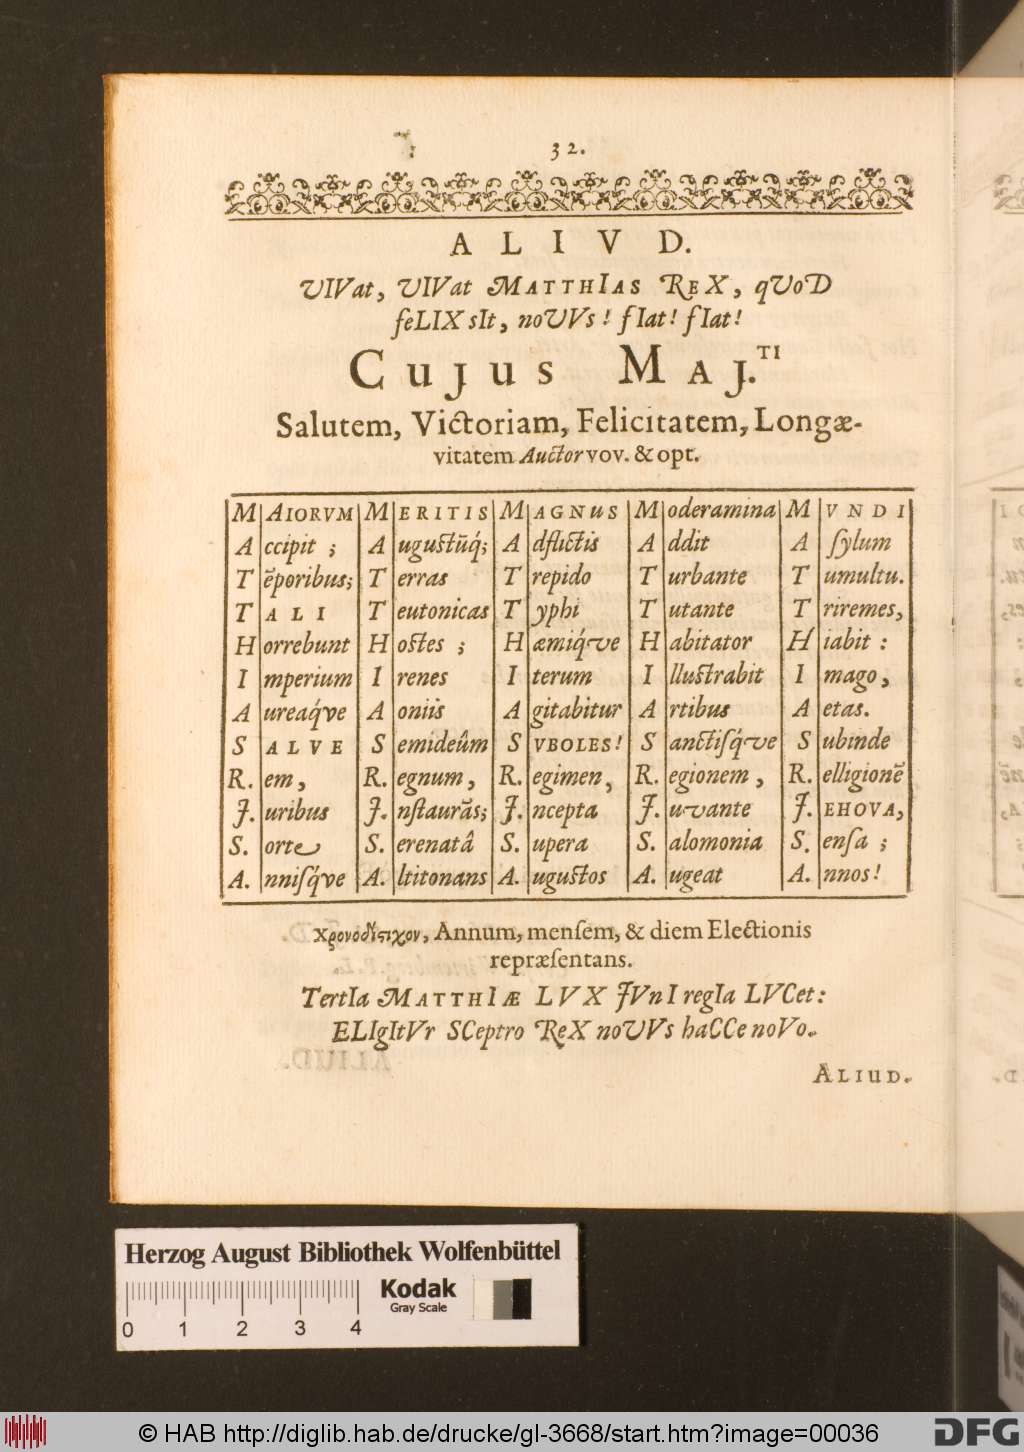 32.
ALIVD.
VIVat, VIVat MATTHIAS REX, qVoD
feLIX sIt, noVVs! fIat! fIat!
CUJUS MAJ.TI
Salutem, Victoriam, Felicitatem, Longæ-
vitatem Auctor vov. & opt.
M AIORVM M ERITIS M AGNUS M oderamina M VNDI
A ccipit ; A ugustūq́; A dflictis A ddit A ſylum
T ēporibus; T erras T repido T urbante T umultu.
T ALI T eutonicas T yphi T utante T riremes,
H orrebunt H ostes ; H æmiq́ve H abitator H iabit :
I mperium I renes I terum I llustrabit I mago,
A ureaq́ve A oniis A gitabitur A rtibus A etas.
S ALVE S emideûm S VBOLES! S anctiſq́ve S ubinde
R. em, R. egnum, R. egimen, R. egionem, R. elligionē
J. uribus J. nſtaurās; J. ncepta J. uvante J. EHOVA,
S. orte S. erenatâ S. upera S. alomonia S. enſa ;
A. nniſq́ve A. ltitonans A. ugustos A. ugeat A. nnos!
Χρονοδίστιχον, Annum, menſem, & diem Electionis
repræſentans.
TertIa MATTHIÆ LVX JVnI regIa LVCet:
ELIgItVr SCeptro REX noVVs haCCe noVo.
ALIUD.
Herzog August Bibliothek Wolfenbüttel
Kodak
Gray Scale
0 1 2 3 4
© HAB http://diglib.hab.de/drucke/gl-3668/start.htm?image=00036
DFG